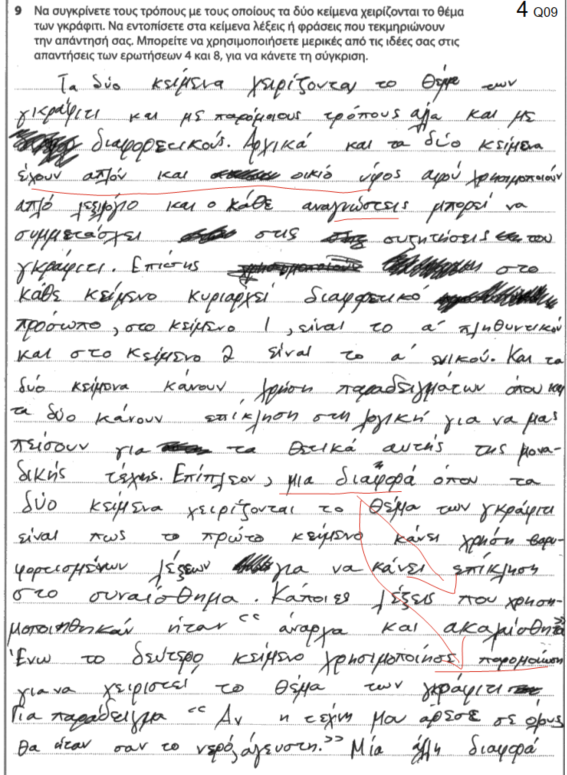 9 Να συγκρίνετε τους τρόπους με τους οποίους τα δύο κείμενα χειρίζονται το θέμα
4 Q09
των γκράφιτι. Να εντοπίσετε στα κείμενα λέξεις ή φράσεις που τεκμηριώνουν
την απάντησή σας. Μπορείτε να χρησιμοποιήσετε μερικές από τις ιδέες σας στις
απαντήσεις των ερωτήσεων 4 και 8, για να κάνετε τη σύγκριση.
Τα δύο κείμενα χειρίζονται το θέμα των
γκράφιτι και με παρόμοιους τρόπους αλα και με
διαφορετικούς. Αρχικά και τα δύο κείμενα
έχουν απλόν και οικιό ύφος αφού χρησιμοποιούν
απλό λεξιλόγιο και ο κάθε αναγνώστεις μπορεί να
συμμετάσχει στις συζητήσεις του
γκράφιτι. Επίσης στο
κάθε κείμενο κυριαρχεί διαφρετικό
πρόσωπο, στο κείμενο 1, είναι το α' πληθυντικού
και στο κείμενο 2 είναι το α' ενικού. Και τα
δύο κείμενα κάνουν χρήση παραδειγμάτων όπου και
τα δύο κάνουν επίκληση στη λογική για να μας
πείσουν για τα θετικά αυτής της μονα-
δικής τέχνης. Επίπλεον, μια διαφρά όπου τα
δύο κείμενα χειρίζονται το θέμα των γκράφιτι
είναι πως το πρώτο κείμενο κάνει χρήση βαρυ-
φορτισμένων λέξεων για να κάνει επίκληση
στο συναίσθημα. Κάποιες λέξεις που χρησι-
μοποιηθηκάν ήταν "άναρχα και ακαλαίσθητα"
Ένω το δεύτερο, κείμενο χρησιμοποίησε παρομοίωση
για να χειριστεί το θέμα των γκράφιτι
Για παράδειγμα "Αν η τέχνη μου άρεσε σε όλους
θα ήταν σαν το νερό, άγευστη." Μία άλλη διαφρά